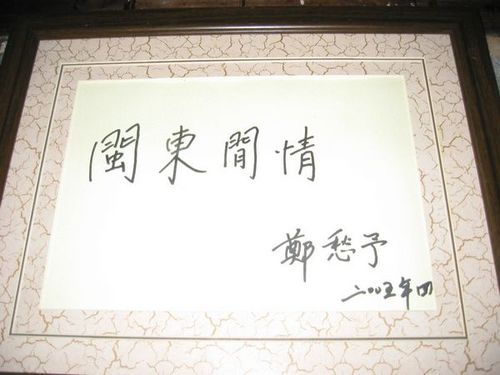 閩東閒情
鄭愁予
二〇〇五年四